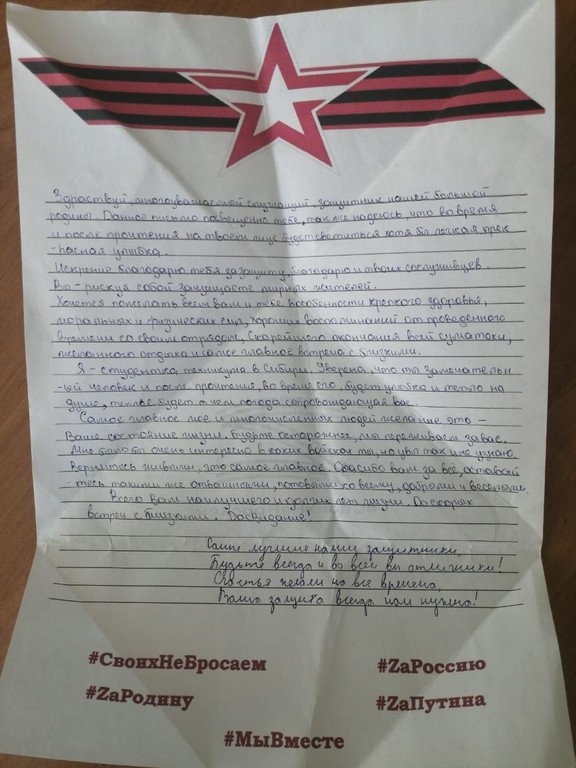 Здраствуй, многоуважаемый служащий, защитник нашей большой
родины. Данное письмо посвещенно тебе, так же надеюсь, что во время
и после прочтения на твоем лице будет светиться хотя бы легкая прек
-расная улыбка.
Искренне благодарю тебя за защиту, благодарю и твоих сослуживцев.
Вы - рискуя собой защищаете мирных жителей.
Хочется пожелать всем вам и тебе в особенности крепкого здоровья,
моральных и физических сил, хороших воспоминаний от проведенного
времени со своим отрядом, скорейшего окончания всей суматохи,
желанного отдыха и самое главное встречи с близкими.
Я - студентка техникума в Сибири. Уверена, что ты замечательн
-ый человек и после прочтения, во время его, будет улыбка и тепло на
душе, теплее будет чем погода сопровождающая вас.
Самое главное мое и многочисленных людей желание это -
Ваше состояние жизни. Будьте осторожнее, мы переживаем за вас.
Мне было бы очень интересно в каких войсках ты, но увы так и не узнаю.
Вернитесь живыми, это самое главное. Спасибо вам за всё, оставай
-тесь такими же отважными, готовыми ко всему, добрыми и веселыми.
Всего Вам наилучшего и долгих лет жизни. До скорых
встреч с близкими. Досвидание!
Самые лучшие наши защитники,
Будьте всегда и во всем вы отличники!
Счастья на все времена,
Ваша защита всегда нам нужна!
#СвоихНеБросаем
#ZaРоссию
#ZaРодину
#ZaПутина
#МыВместе